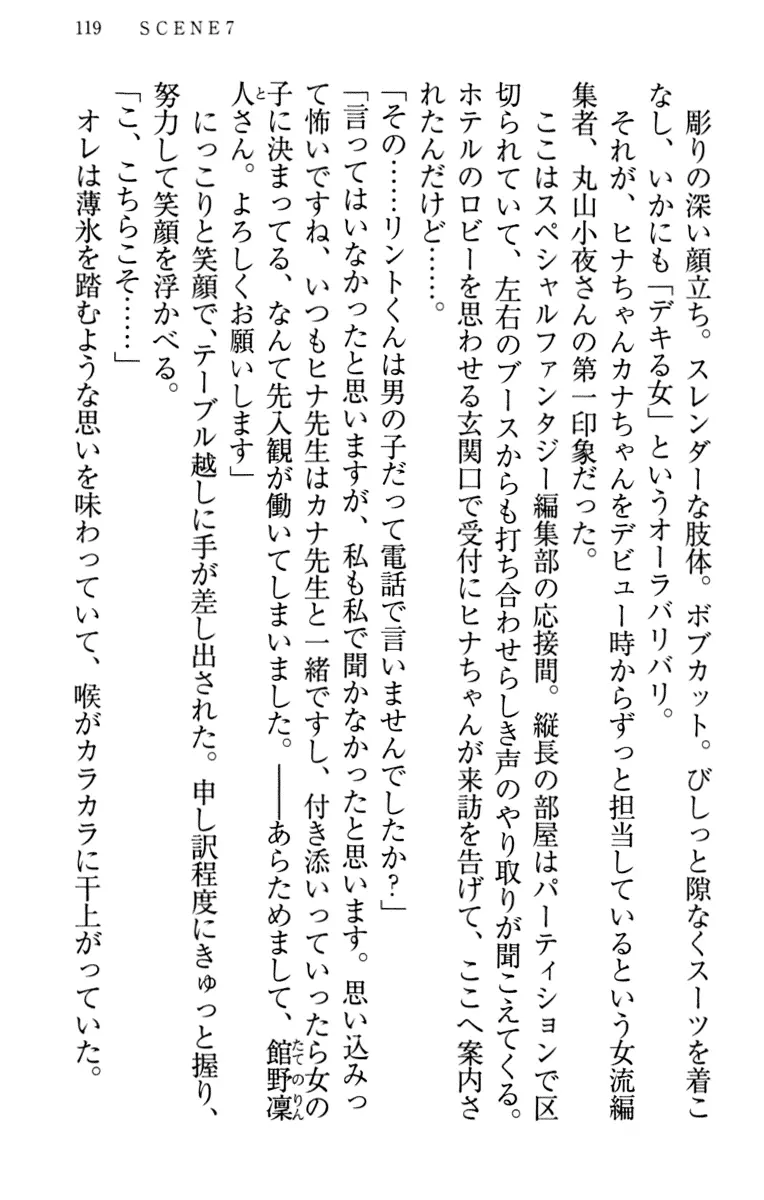 119 SCENE7
彫りの深い顔立ち。スレンダーな肢体。ボブカット。びしっと隙なくスーツを着こ
なし、いかにも「デキる女」というオーラバリバリ。
それが、ヒナちゃんカナちゃんをデビュー時からずっと担当しているという女流編
集者、丸山小夜さんの第一印象だった。
ここはスペシャルファンタジー編集部の応接間。縦長の部屋はパーティションで区
切られていて、左右のブースからも打ち合わせらしき声のやり取りが聞こえてくる。
ホテルのロビーを思わせる玄関口で受付にヒナちゃんが来訪を告げて、ここへ案内さ
れたんだけど……。
「その……リントくんは男の子だって電話で言いませんでしたか?」
「言ってはいなかったと思いますが、私も私で聞かなかったと思います。思い込みっ
て怖いですね、いつもヒナ先生はカナ先生と一緒ですし、付き添いっていったら女の
子に決まってる、なんて先入観が働いてしまいました。――あらためまして、館野凜
たてのりん
人さん。よろしくお願いします」
と
にっこりと笑顔で、テーブル越しに手が差し出された。申し訳程度にきゅっと握り、
努力して笑顔を浮かべる。
「こ、こちらこそ……」
オレは薄氷を踏むような思いを味わっていて、喉がカラカラに干上がっていた。